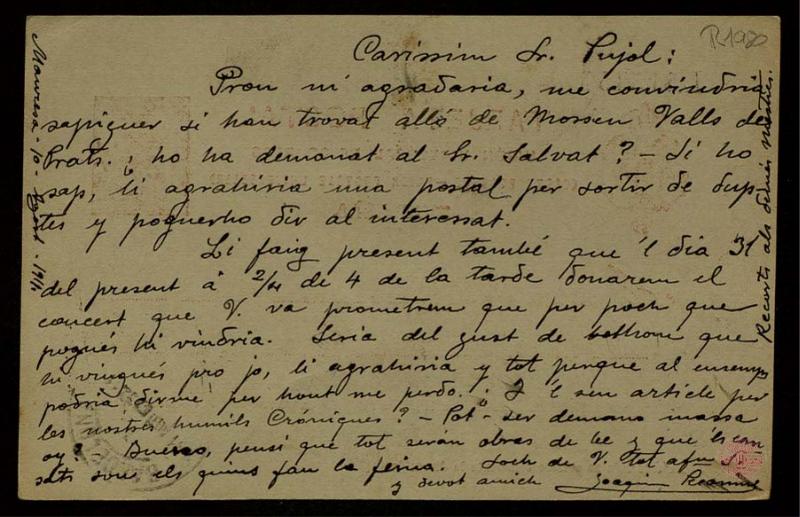 Caríssim Sr. Pujol:
Prou m' agradaria, me convindria
sapiguer si han trovat alló de Mossen Valls de
Prats. ¿ho ha demanat al Sr. Salvat? - Si ho
sap, li agrahiria una postal per sortir de dup-
tes y poguerho dir al interessat.
Li faig present també que 'l dia 31
del present á 2/4 de 4 de la tarde donarem el
concert que V. va prometrem que per poch que
pogués hi vindria. Seria del gust de tothom que
hi vingués pro jo, li agrahiria y tot perque al ensemps
podria dirme per hont me perdo. ¿I 'l seu article per
les nostres humils Cróniques? - Pot ser demano massa
oy? - Bueno, pensi que tot serán obras de be y que 'ls can-
sats son els quins fan la feina. Soch de V. tot afm S.
y devot amich Joaquim
Manresa - - Agost - 191
Recorts als demés mestres.
R1980